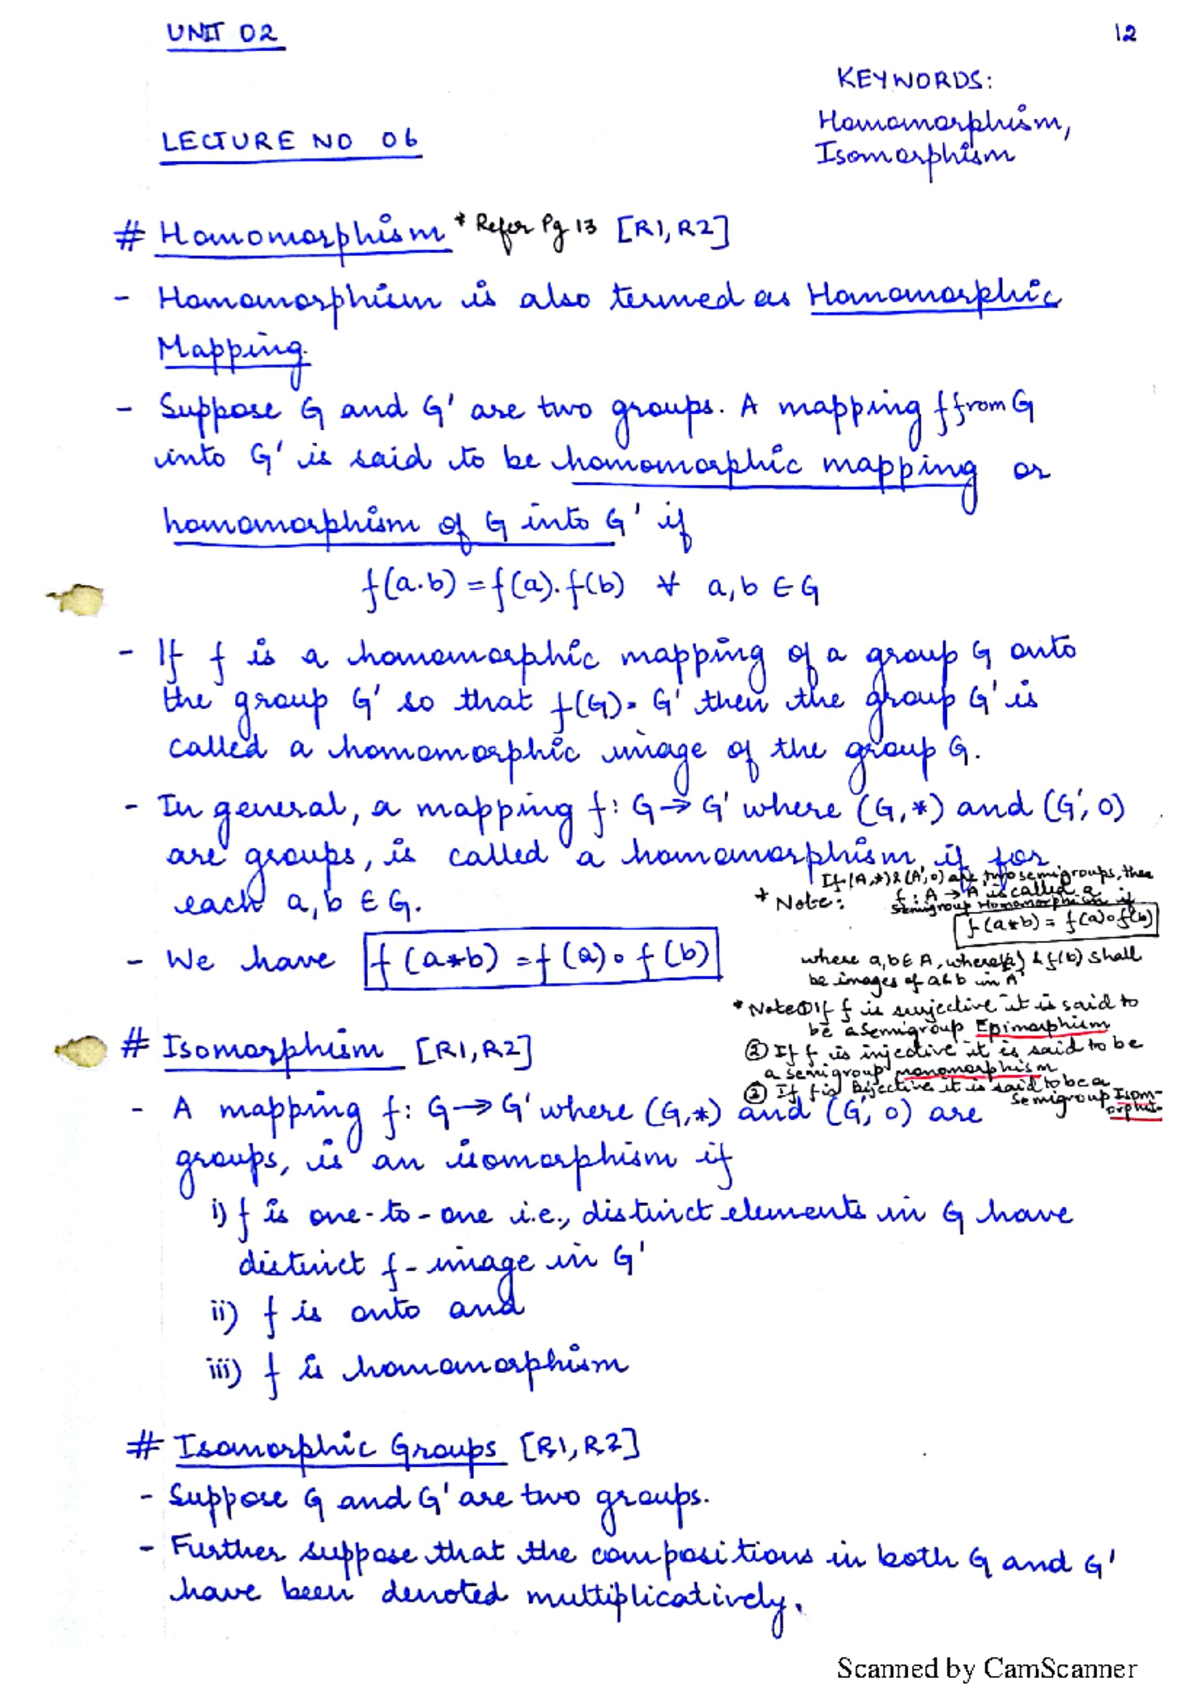 UNIT 02
12
KEYWORDS:
Homomorphism,
Isomorphism
LECTURE NO 06
# Homomorphism * Refer Pg 13 [R1, R2]
- Homomorphism is also termed as Homomorphic
Mapping.
- Suppose G and G' are two groups. A mapping f from G
into G' is said to be homomorphic mapping or
homomorphism of G into G' if
f(a.b) = f(a).f(b) ∀ a,b ∈ G
- If f is a homomorphic mapping of a group G onto
the group G' so that f(G) = G' then the group G' is
called a homomorphic image of the group G.
- In general, a mapping f: G → G' where (G,*) and (G', o)
are groups, is called a homomorphism if for
each a,b ∈ G.
- We have f(a*b) = f(a) o f(b)
* Note: If (A,*) & (A', o) are two semigroups, then
f: A → A' is called a
semigroup Homomorphism if
f(a*b) = f(a) o f(b)
where a,b ∈ A, where f(a) & f(b) shall
be images of a & b in A'
* Note ① If f is surjective it is said to
be a semigroup Epimorphism
② If f is injective it is said to be
a semigroup monomorphism
② If f is Bijective it is said to be a
semigroup Isom-
orphism
# Isomorphism [R1, R2]
- A mapping f: G → G' where (G,*) and (G', o) are
groups, is an isomorphism if
i) f is one-to-one i.e., distinct elements in G have
distinct f-image in G'
ii) f is onto and
iii) f is homomorphism
# Isomorphic Groups [R1, R2]
- Suppose G and G' are two groups.
- Further suppose that the compositions in both G and G'
have been denoted multiplicatively.
Scanned by CamScanner